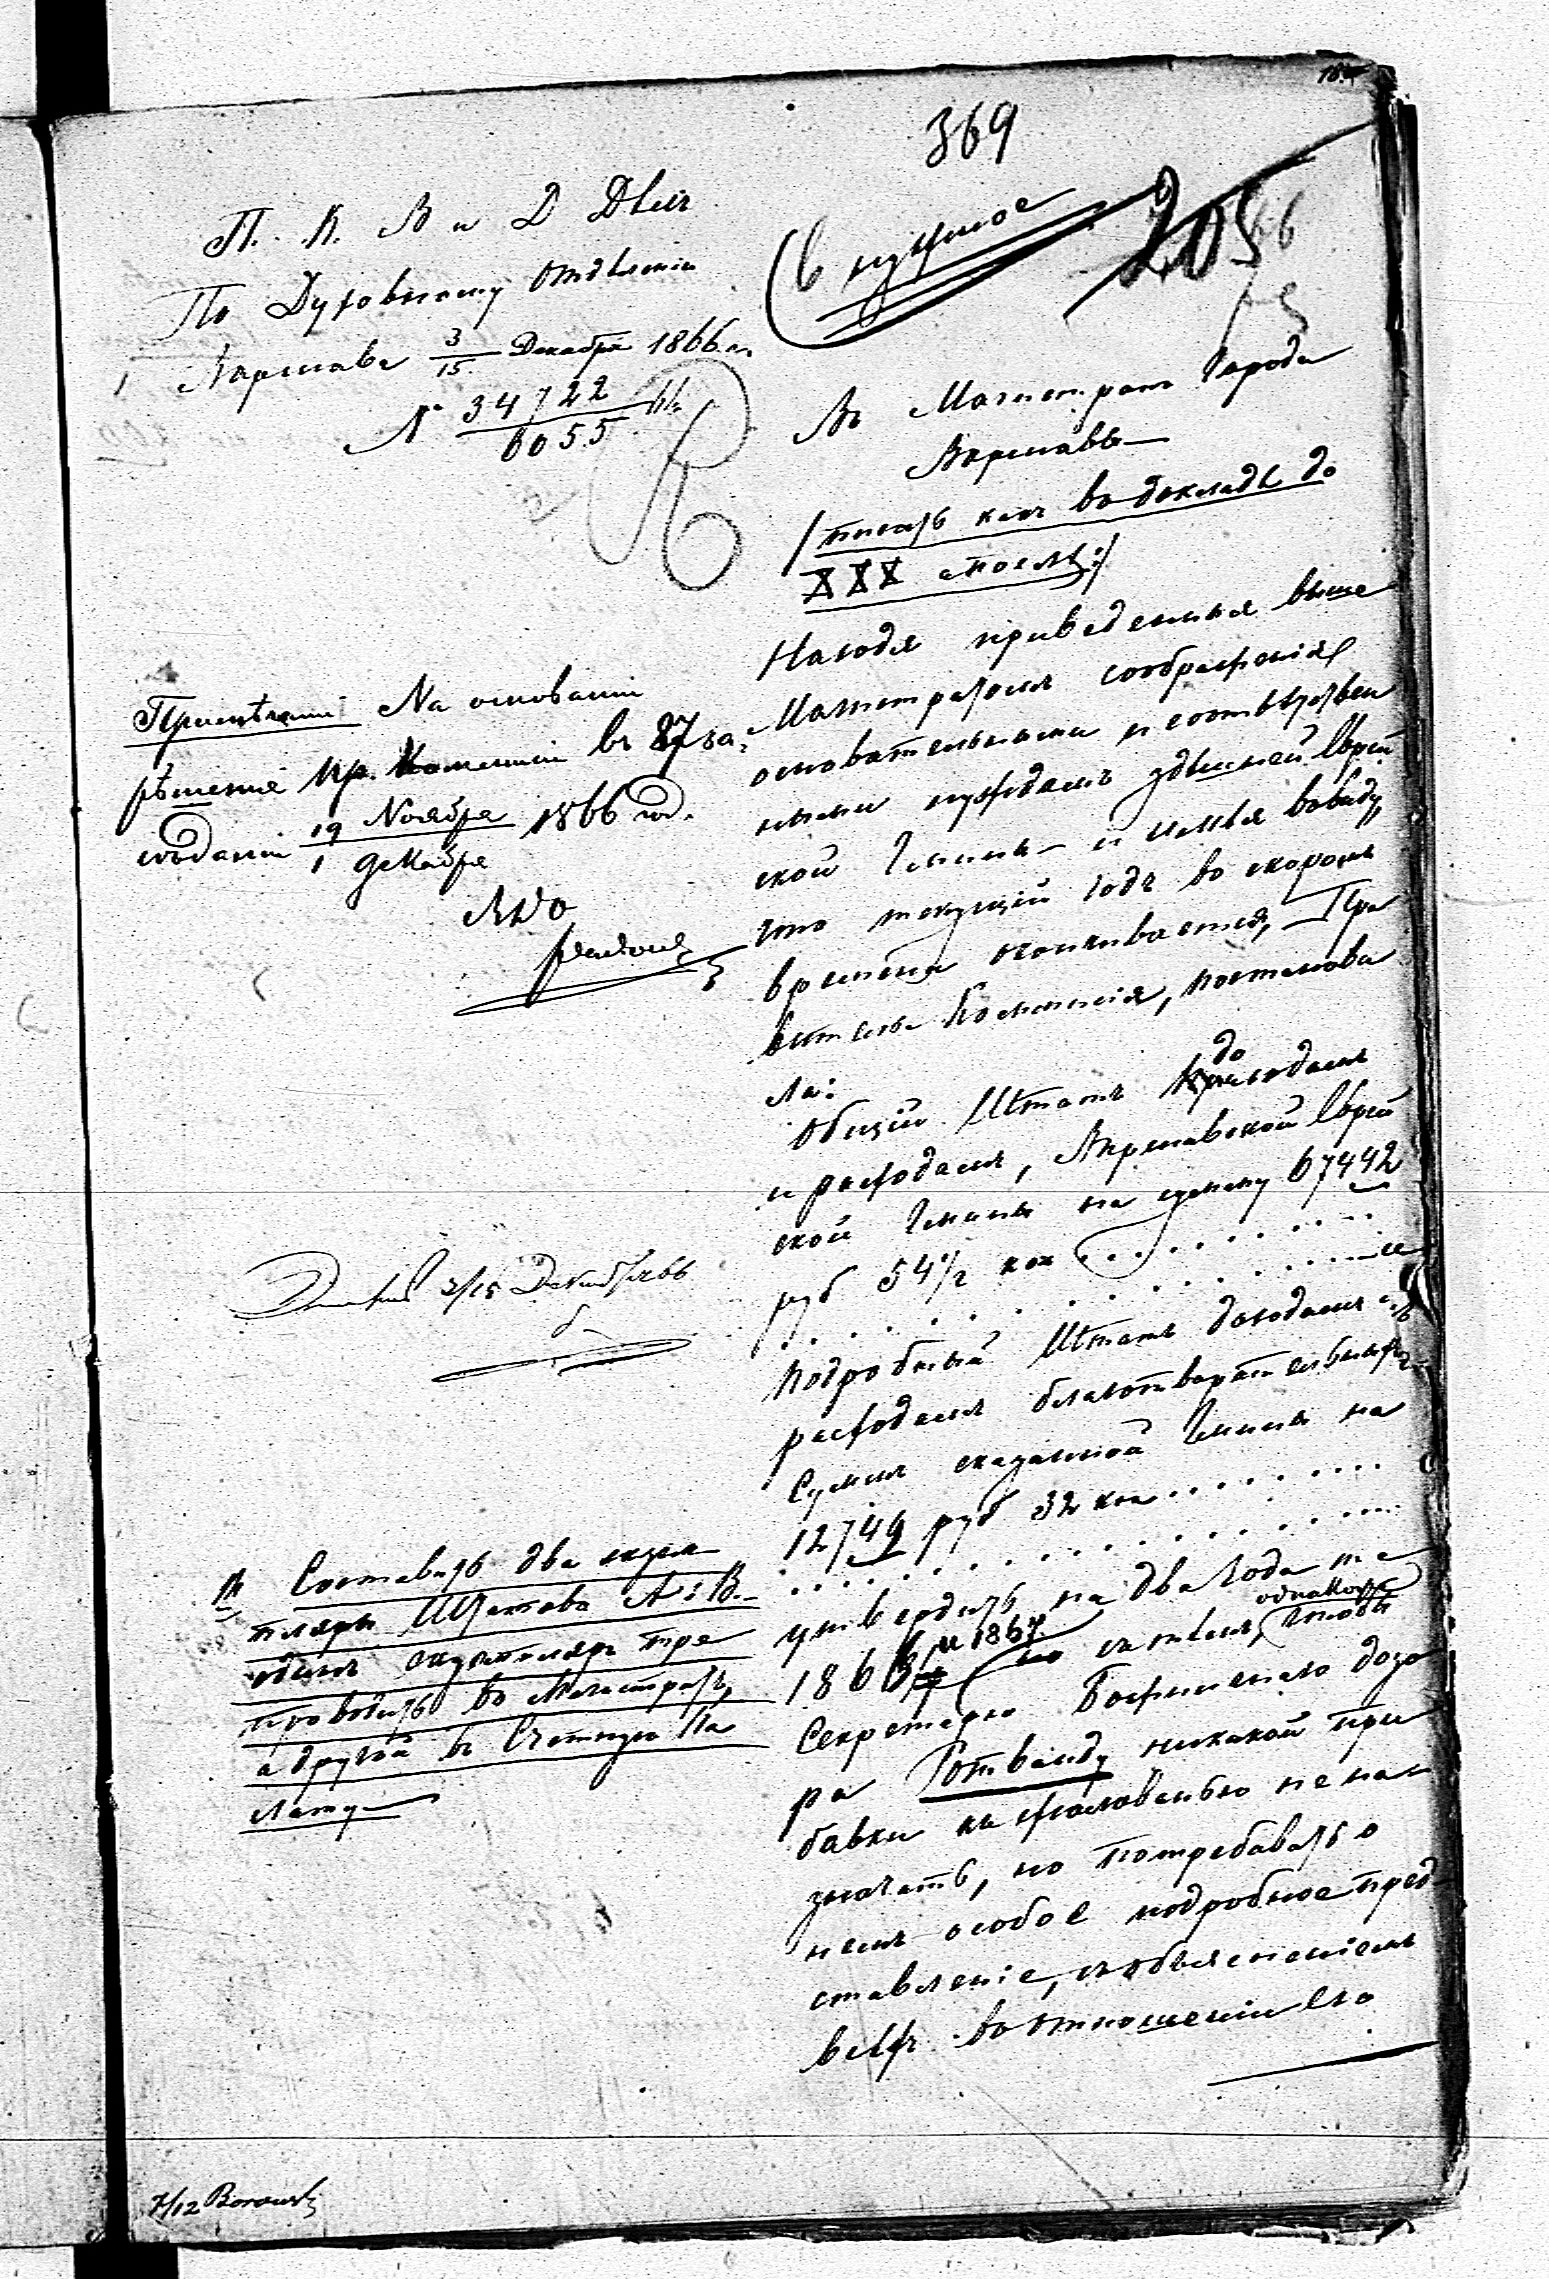 369
205
П. К. В и Д Дѣлъ
По Духовному Отдѣленію
Варшава 3/15 Декабря 1866 г.
№ 34722/6055
В нужное
Въ Магистратъ Города
Варшавы
/писать какъ во докладѣ до
XXX после:/
Находя приведенныя выше
Магистратомъ соображенія
основательными и соотвѣтствен
ными нуждамъ здѣшней Еврей
ской Гмины и имѣя ввиду,
что текущій годъ во скоромъ
времени оканчивается, Пра
вительс. Коммиссія, постанови
ла:
Общій Штатъ доходамъ
и расходамъ, Варшавской Еврей
ской Гмины на сумму 67442
руб 54 1/2 коп . . . . . . . . .
. . . . . . . . . . . . и
подробный Штатъ доходамъ и
расходамъ благотворительныхъ
Суммъ сказанной Гмины на
12749 руб 32 коп . . . . . . . .
. . . . . . . . . . . .
утвердить на два года т е
1866 и 1867. но съ тѣмъ, однакожъ чтобы
Секретарю Божничаго дозо
ра Ротванду никакой при
бавки къ жалованью не наз
значать, но потребовать о
немъ особое подробное пред
ставленіе, съ объясненіемъ
всѣхъ во отношеніи его
Примѣчаніе На основаніи
рѣшенія Пр. Комиссіи въ 87 за
сѣданіи 19 Ноября / 1 декабря 1866 год.
3/15 Декабря 66
Составить два экзем
пляра Штатовъ А и В.
одинъ экземпляръ пре
проводить во Магистратъ,
а другой въ Счетную Па
лату
7/12